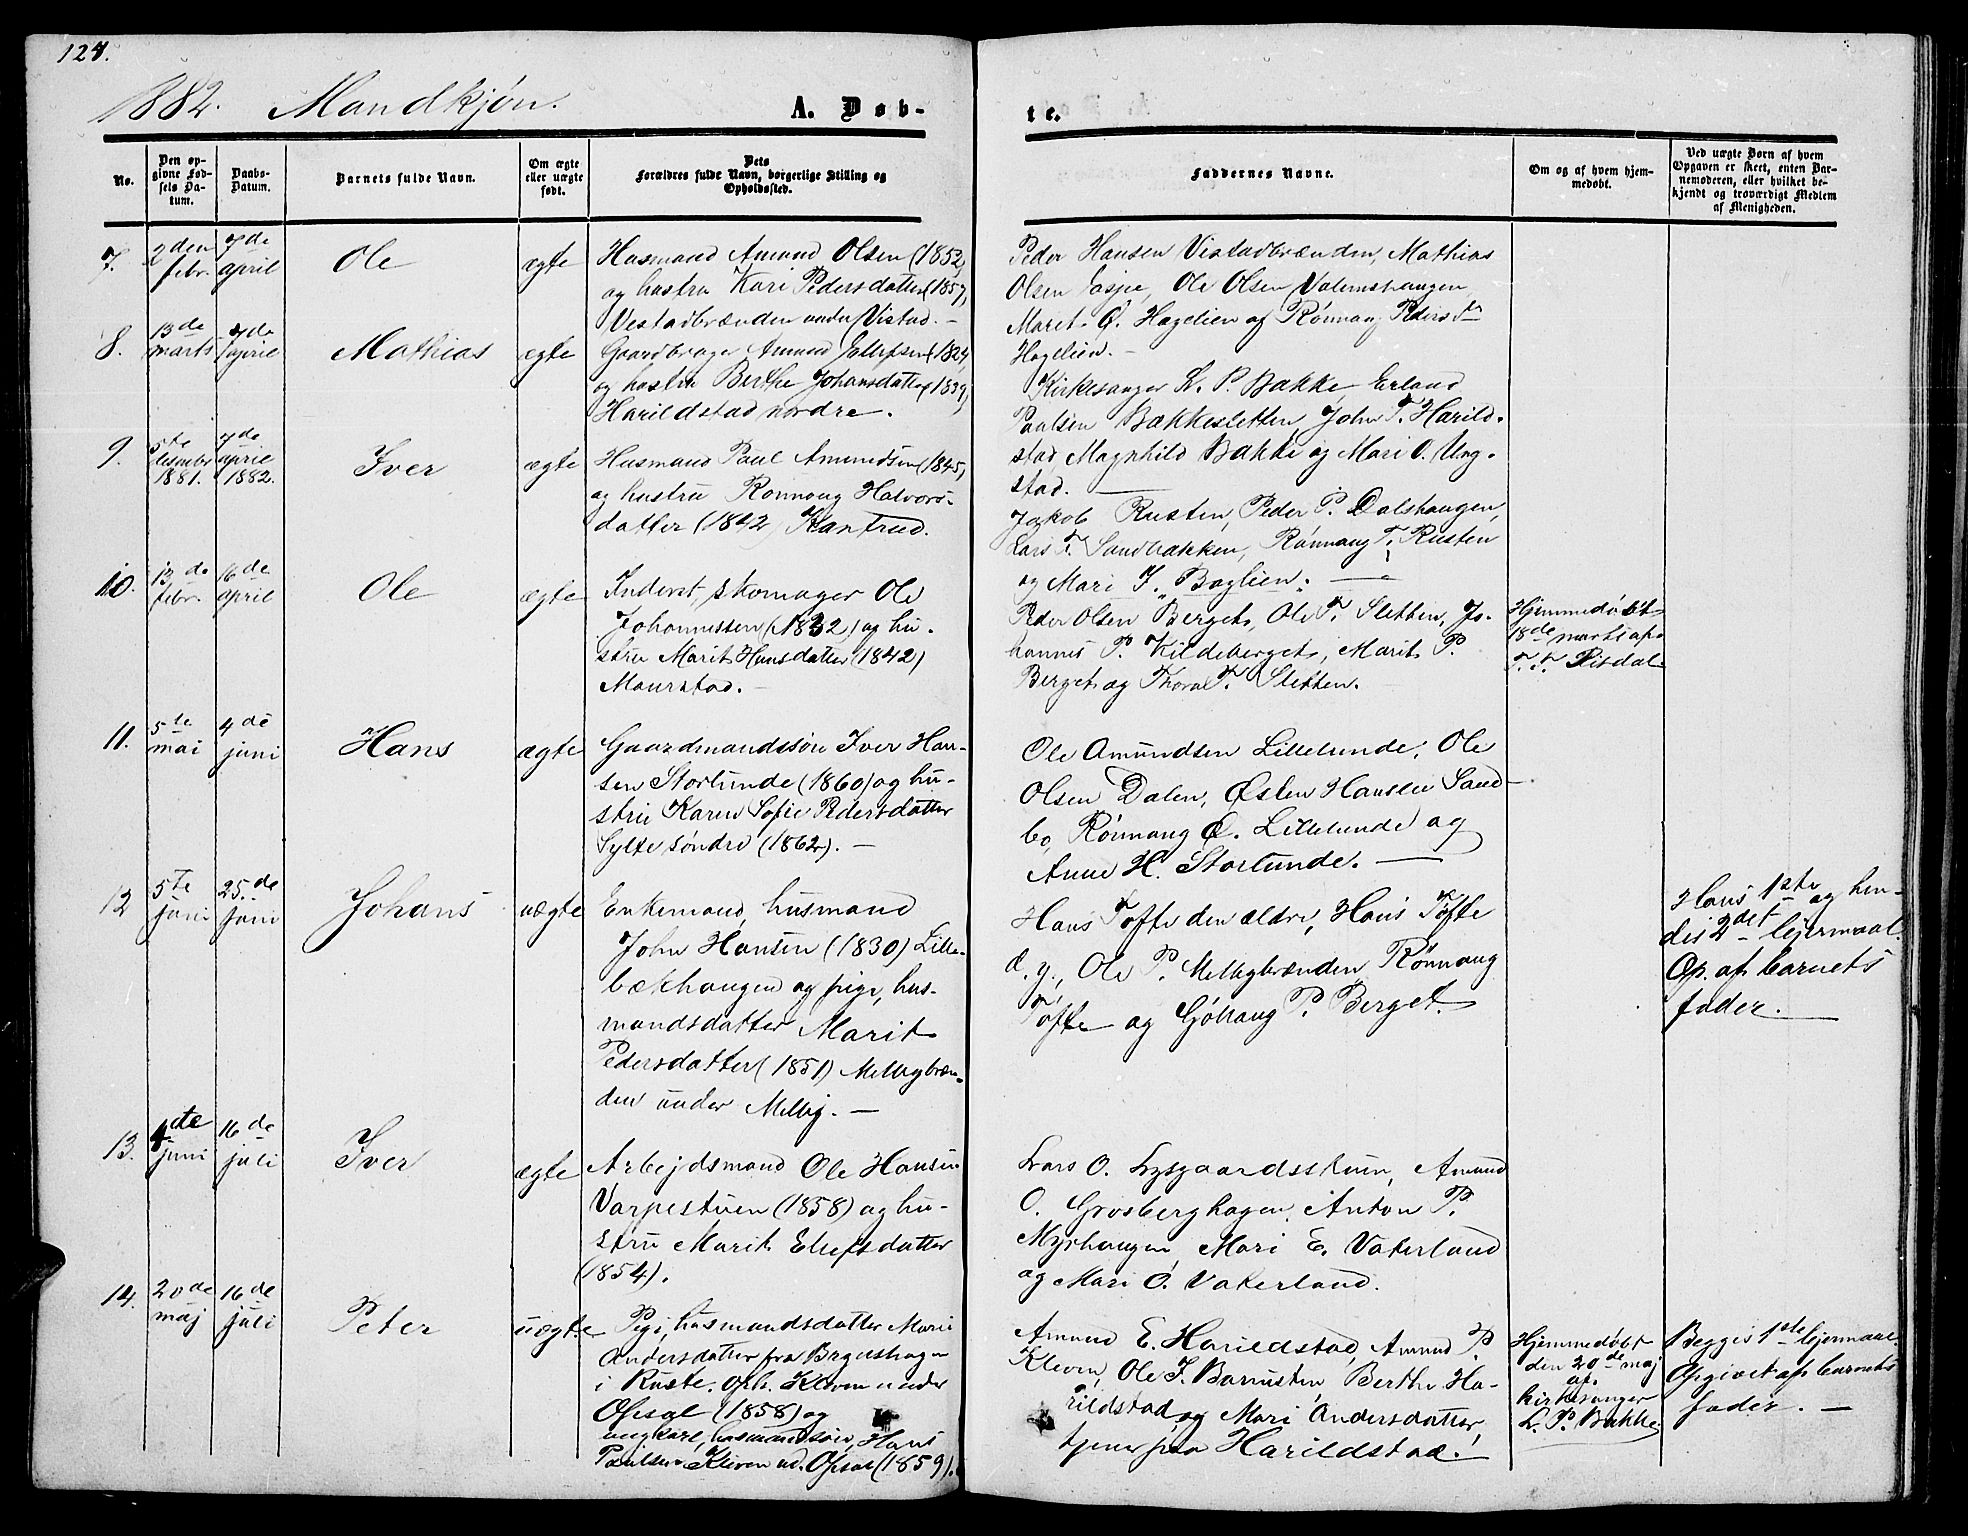 127.
1882. Mandkjøn. A. Døb-
te.
No.
Den op-
givne Fød-
sels Da-
tum.
Daabs-
Datum.
Barnets fulde Navn.
Om ægte
eller uægte
født.
Dets
Forældres fulde Navn, borgerlige Stilling og
Opholdssted.
Faddernes Navne.
Om og af hvem hjem-
medøbt.
Ved uægte Børn af hvem
Opgaven er skeet, enten Bar-
nemoderen, eller hvilket be-
kjendt og troværdigt Medlem
af Menigheden.
7.
2den
febr.
7de
april
Ole
ægte
Husmand Amund Olsen (1852)
og hustru Kari Pedersdatter (1857)
Vestadbrænden under Vistad. —
Peder Hansen Vistadbrænden, Mathias
Olsen Jaspe, Ole Olsen Valemshaugen
Marit Ø. Hagelien og Rønnaug Pedersdtr
Hagelien. —
8.
13de
marts
7de
april
Mathias
ægte
Gaardbruger Amund Ellefsen (1824)
og hustru Berthe Johansdatter (1839)
Harildstad nordre.
Kirkesanger L. P. Bakke, Erland
Paulsen Bækkesletten, John T. Harild-
stad Magnhild Bakke og Mari O. Ung-
stad. —
9.
5te
desember
1881.
7de
april
1882.
Iver
ægte
Husmand Paul Amundsen (1845)
og hustru Rønnoug Halvors-
datter (1842) Kantrud.
Jakob Rusten, Peder P. Dalshaugen,
Lars T. Sandbakken, Rønnaug T. Rusten
og Mari J. Baglien. —
10.
13de
febr.
16de
april
Ole
ægte
Inderst, skomager Ole
Johannessen (1832) og hu-
stru Marit Hansdatter (1842)
Maurstad. —
Peder Olsen Berget, Ole T. Sletten, Jo-
hannes P. Kildeberget, Marit P.
Berget og Thora T. Sletten.
Hjemmedøbt
18de marts af
T. T. Risdal.
11.
5te
mai
4de
juni
Hans
ægte
Gaardmandssøn Iver Han-
sen Storlunde (1860) og hu-
stru Karen Sofie Pedersdatter
Sylte søndre (1862). —
Ole Amundsen Lillelunde, Ole
Olsen Dalen, Østen Hansen Sand-
bo, Rønnaug O. Lillelunde og
Anne H. Storlunde. —
12
5te
juni
25de
juni
Johans
uægte
Enkemand, husmand
John Hansen (1830) Lille-
bækhaugen og pige, hus-
mandsdatter Marit
Pedersdatter (1851) Melbybræn-
den under Melby. —
Hans Tofte den ældre, Hans Tofte
d. y., Ole P. Melbybrænden Rønnaug
Tofte og Gjøllaug P. Berget.
Hans 1ste og hen-
des 2det lejermaal.
Op. af barnets
fader. —
13.
4de
juni
16de
juli
Iver
ægte
Arbejdsmand Ole Hansen
Varpestuen (1858) og hu-
stru Marit Ellefsdatter
(1854).
Lars O. Lysgaardsstuen, Amund
O. Grosberghagen, Anton P.
Myrhaugen, Mari E. Vaterland
og Mari O. Vaterland.
14.
20de
maj
16de
juli
Peter
uægte
Pige, husmandsdatter Mari
Andersdatter fra Brgelshagen
i Ruste. Oph. Kleven under
Opsal (1858) og
ungkarl, husmandssøn, Hans
Paulsen Kleven ud. Opsal (1859).
Amund E. Harildstad, Amund P.
Kleven, Ole J. Barrusten, Berthe Ha-
rildstad og Mari Andersdatter,
tjener paa Harildstad.
Hjemmedøbt
den 20de maj
af
kirkesanger
L. P. Bakke
Begges 1ste lejermaal.
Opgivet af barnets
fader. —